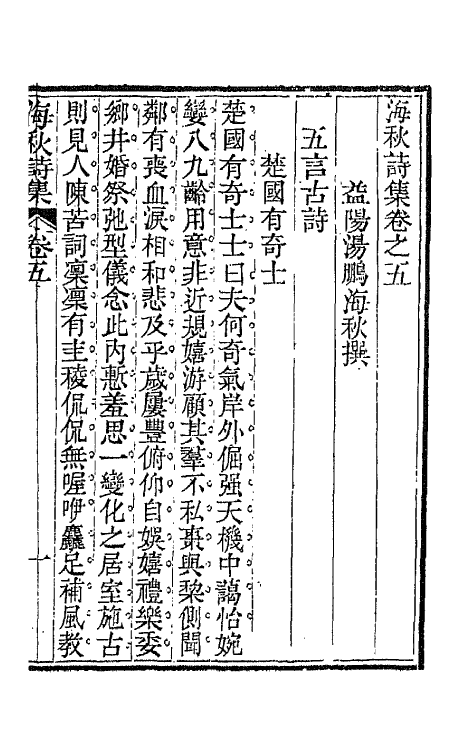 海秋詩集卷之五
益陽湯鵬海秋撰
五言古詩
楚國有奇士
楚國有奇士士曰夫何奇氣岸外倔强天機中藹怡婉
孌八九齡用意非近規嬉游顧其羣不私棗與棃側聞
鄰有喪血淚相和悲及乎歲屢豐俯仰自娛嬉禮樂委
鄉井婚祭弛型儀念此內慙羞思一變化之居室施古
則見人陳苦詞凜凜有圭稜侃侃無喔咿麤足補風教
海秋詩集
卷五
一